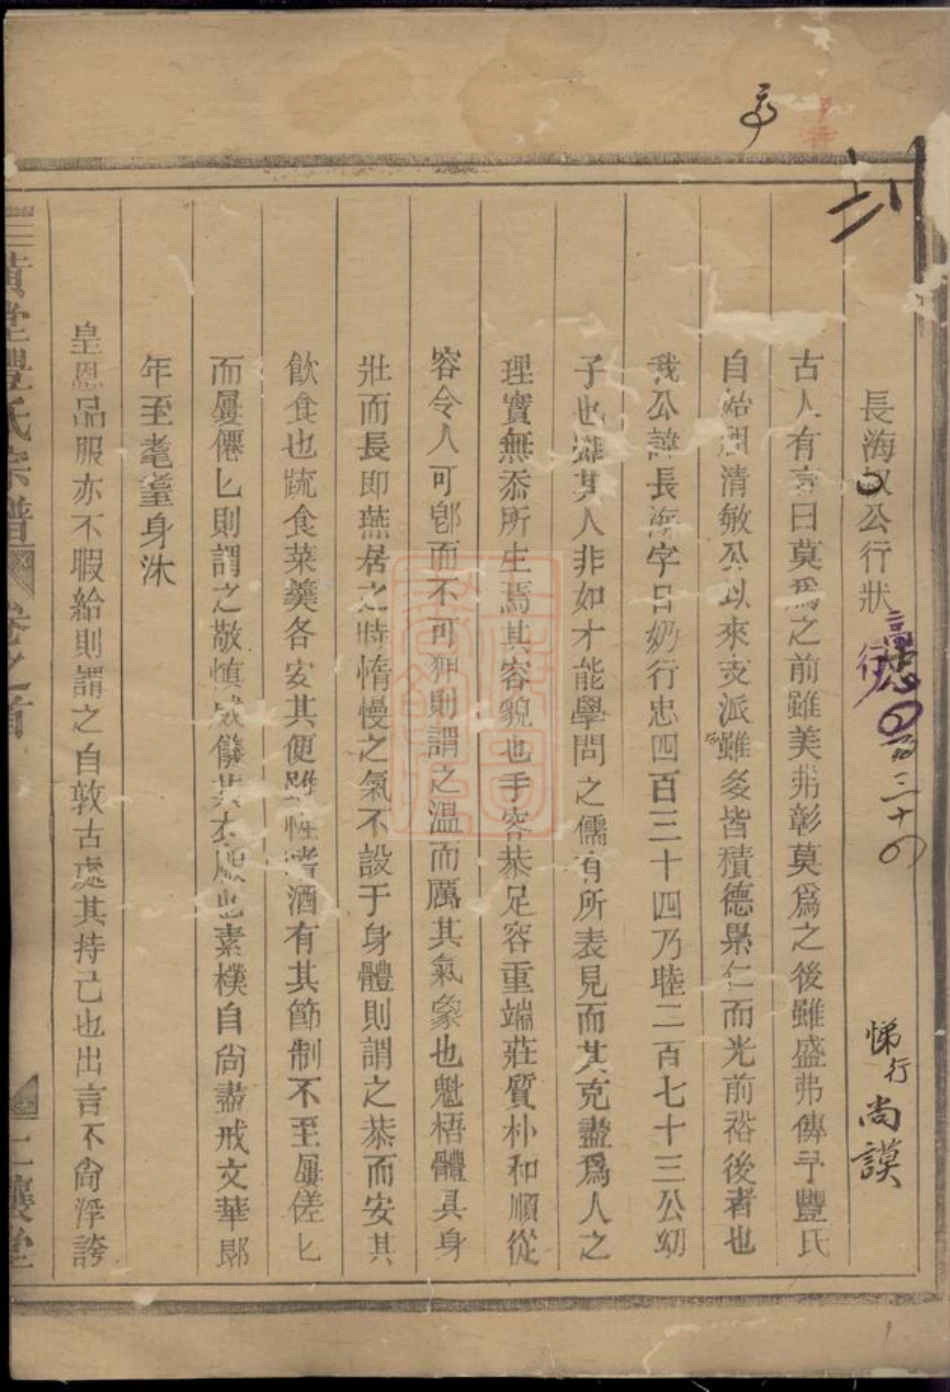 長海叔公行狀
古人有言曰莫爲之前雖美弗彰莫爲之後雖盛弗傳予豐氏
自始祖清敏公以來支派雖多皆積德累仁而光前裕後者也
我公諱長海字日奶行忠四百三十四乃睦二百七十三公幼
子也雖其人非如才能學問之儒有所表見而其克盡爲人之
理實無忝所生焉其容貌也手容恭足容重端莊質朴和順從
容令人可卽而不可狎則謂之温而厲其氣象也魁梧體具身
壯而長即燕居之時惰慢之氣不設于身體則謂之恭而安其
飲食也疏食菜羹各安其便雖性嗜酒有其節制不至屢傞匕
而屢僊匕則謂之敬慎威儀其衣服也素樸自尚盡戒文華郎
年至耄耋身沐
皇恩品服亦不暇給則謂之自敦古處其持己也出言不尙浮誇
黄堂豐氏宗譜
卷之首
悌行尚謨
三十